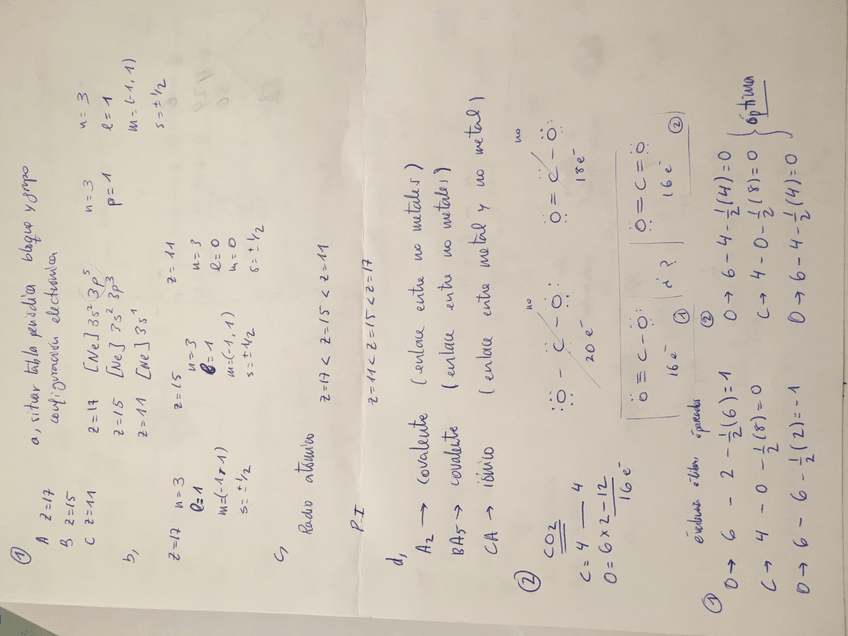 ①
A z=17
B z=15
C z=11
a, situar tabla periódica bloque y grupo
configuración electronica
z=17 [Ne] 3s² 3p⁵
z=15 [Ne] 3s² 3p³
z=11 [Ne] 3s¹
n=3
p=1
n=3
l=1
m=(-1,1)
s=±1/2
b,
z=17 n=3
l=1
m=(-1,1)
s=±1/2
z=15
n=3
l=1
m=(-1,1)
s=±1/2
z=11
n=3
l=0
m=0
s=±1/2
c, Radio atómico z=17 < z=15 < z=11
P.I z=11 < z=15 < z=17
d,
A₂ → covalente (enlace entre no metales)
BA₅ → covalente (enlace entre no metales)
CA → iónico (enlace entre metal y no metal)
② CO₂
C=4 — 4
O=6x2-12
16e⁻
O - C - O no
20e⁻
O = C - O no
18e⁻
O ≡ C - O
16e⁻ ①
¿?
O = C = O
16e⁻ ②
①
O → 6 - 2 - 1/2(6) = 1
C → 4 - 0 - 1/2(8) = 0
O → 6 - 6 - 1/2(2) = -1
②
O → 6 - 4 - 1/2(4) = 0
C → 4 - 0 - 1/2(8) = 0
O → 6 - 4 - 1/2(4) = 0
óptima